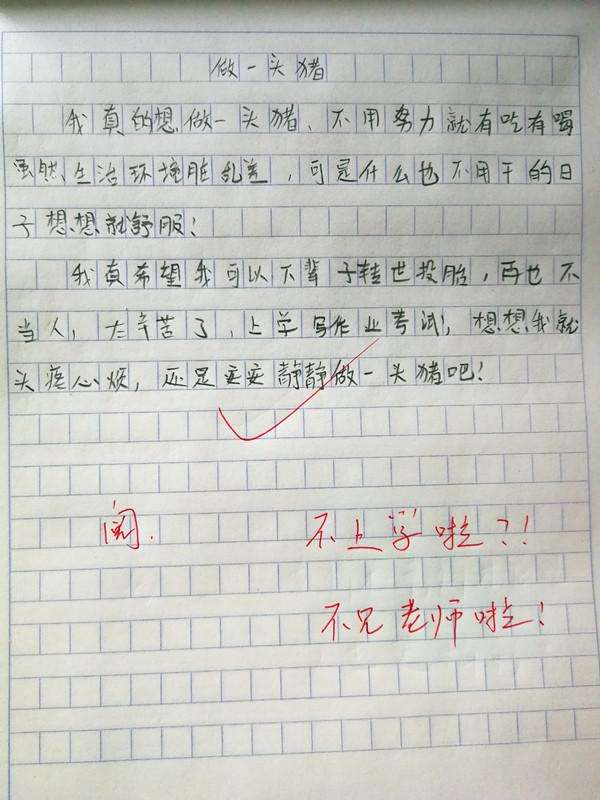 做一头猪
我真的想做一头猪、不用努力就有吃有喝
虽然生活环境脏乱差，可是什么也不用干的日
子想想就舒服！
我真希望我可以下辈子转世投胎，再也不
当人，太辛苦了，上学写作业考试，想想我就
头疼心烦，还是安安静静做一头猪吧！
阅.
不上学啦？！
不见老师啦！